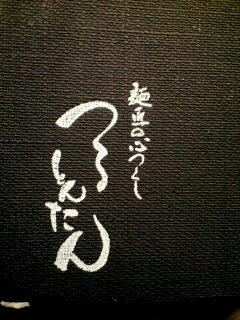 麺匠の心つくし
つる
とんたん